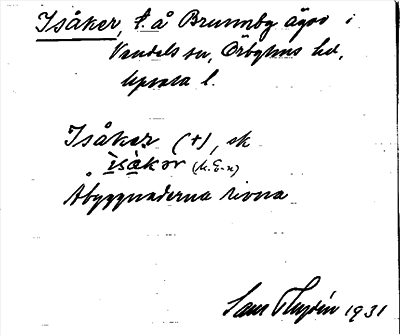 Isåker, t. å Brunnby ägor i
Vendels sn, Örbyhus hd,
Upsala l.
Isåker (+), sk
ìsàkər (M.E-n)
Åbyggnaderna rivna
1931